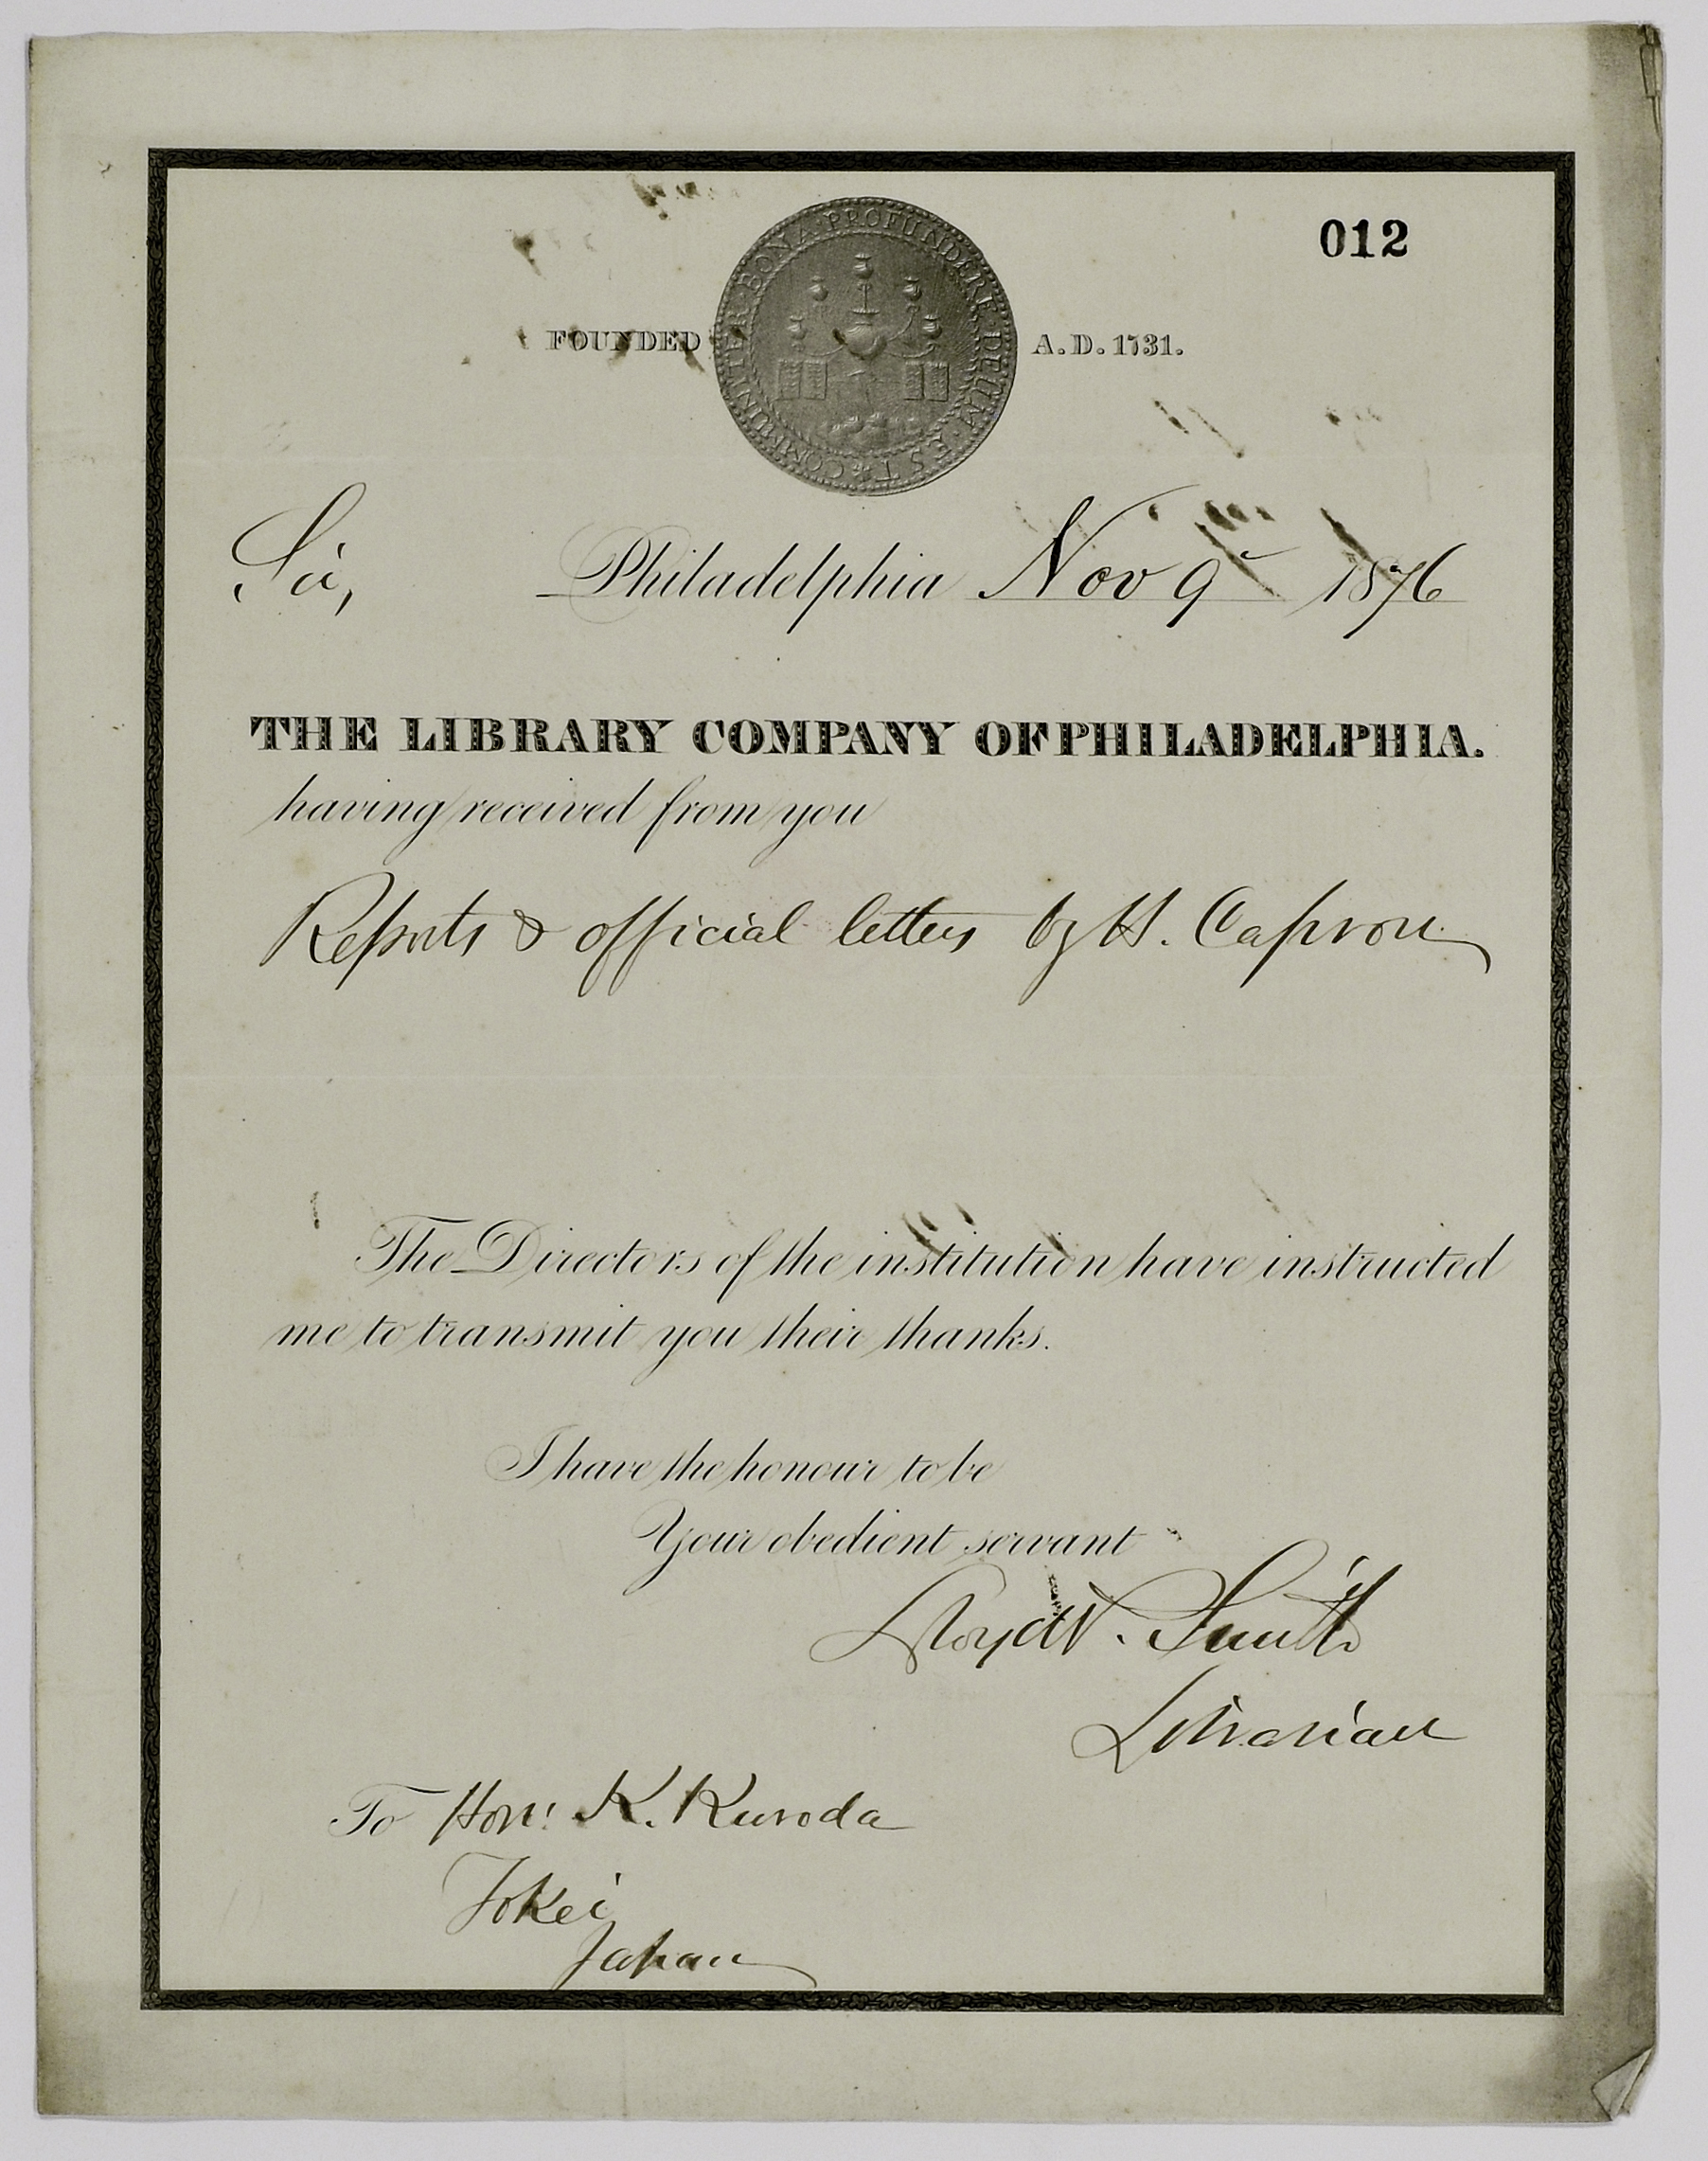 012
COMMUNITER·BONA·PROFUNDERE·DEUM·EST
FOUNDED A.D. 1731.
Sir, Philadelphia Nov 9 1876
THE LIBRARY COMPANY OF PHILADELPHIA.
having received from you
Reports & official letters by H. Capron
The Directors of the institution have instructed
me to transmit you their thanks.
I have the honour to be
Your obedient servant
Lloyd P. Smith
Librarian
To Hon: K. Kuroda
Tokei
Japan